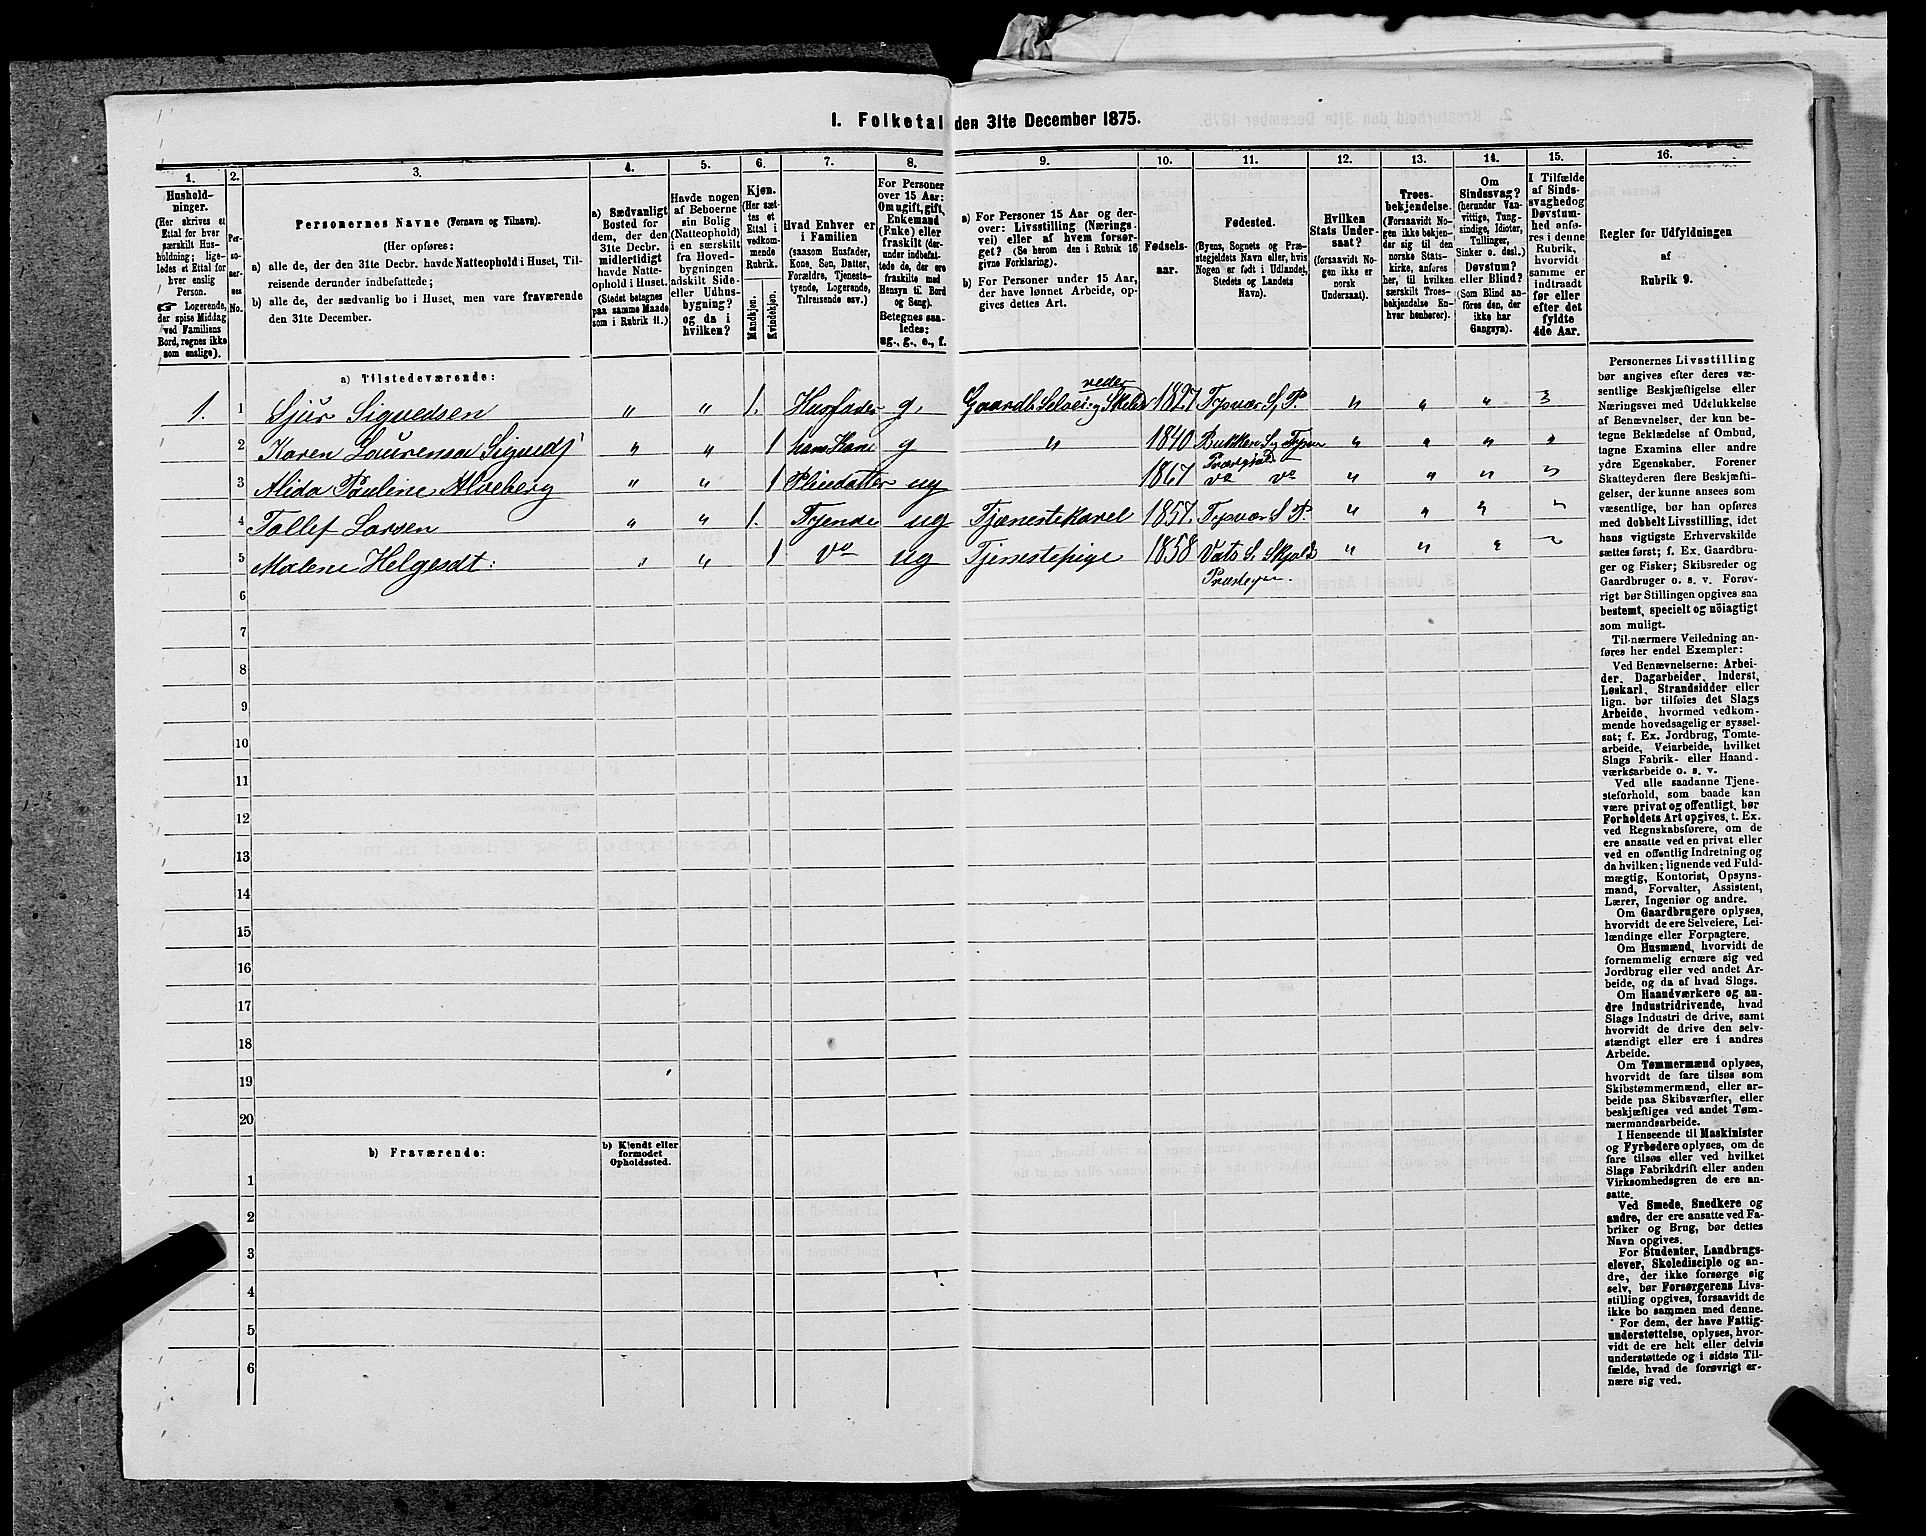 I. Folketal den 31te December 1875.
1. 2. 3. 4. 5. 6. 7. 8. 9. 10. 11. 12. 13. 14. 15. 16.
Hushold-
ninger.
(Her skrives et
Ettal for hver
særskilt Hus-
holdning; lige-
ledes et Ettal for
hver enslig
Person.
☞ Logerende,
der spise Middag
ved Familiens
Bord, regnes ikke
som enslige).
Per-
so-
ner-
nes
No.
Personernes Navne (Fornavn og Tilnavn).
(Her opføres:
a) alle de, der den 31te Decbr. havde Natteophold i Huset, Til-
reisende derunder indbefattede;
b) alle de, der sædvanlig bo i Huset, men vare fraværende
den 31te December.
a) Sædvanligt
Bosted for
dem, der den
31te Decbr.
midlertidigt
havde Natte-
ophold i Huset.
(Stedet betegnes
paa samme Maade
som i Rubrik 11.)
Havde nogen
af Beboerne
sin Bolig
(Natteophold)
i en særskilt
fra Hoved-
bygningen
adskilt Side-
eller Udhus-
bygning?
og da i
hvilken?
Kjøn.
(Her sæt-
tes et
Ettal i
vedkom-
mende
Rubrik.
Mandkjøn.
Kvindekjøn.
Hvad Enhver er
i Familien
(saasom Husfader,
Kone, Søn, Datter,
Forældre, Tjeneste-
tyende, Logerende,
Tilreisende osv.)
For Personer
over 15 Aar:
Om ugift, gift,
Enkemand
(Enke) eller
fraskilt (der-
under indbefat-
tede de, der ere
fraskilte med
Hensyn til Bord
og Seng).
Betegnes saa-
ledes:
ug., g., e., f.
a) For Personer 15 Aar og der-
over: Livsstilling (Nærings-
vei) eller af hvem forsør-
get? (Se herom den i Rubrik 16
givne Forklaring).
b) For Personer under 15 Aar,
der have lønnet Arbeide, op-
gives dettes Art.
Fødsels-
aar.
Fødested.
(Byens, Sognets og Præ-
stegjeldets Navn, eller, hvis
Nogen er født i Udlandet,
Stedets og Landets
Navn).
Hvilken
Stats Under-
saat?
(forsaavidt No-
gen ikke er
norsk
Undersaat).
Troes-
bekjendelse.
(Forsaavidt No-
gen ikke bekjen-
der sig til den
norske Stats-
kirke, anføres
her, til hvilken
særskilt Troes-
bekjendelse En-
hver henhører).
Om
Sindssvag?
(herunder Van-
vittige, Tung-
sindige, Idioter,
Tullinger,
Sinker o. desl.).
Døvstum?
eller Blind?
(Som Blind an-
føres den, der
ikke har
Gangsyn).
I Tilfælde
af Sinds-
svaghed og
Døvstum-
hed anfø-
res i denne
Rubrik,
hvorvidt
samme er
indtraadt
før eller
efter det
fyldte
4de Aar.
Regler for Udfyldningen
af
Rubrik 9.
a) Tilstedeværende:
1. 1 Sjur Sigvedsen " " 1. Husfader g. Gaardb. Selvei. og Skibsreder 1827 Tysvær S. P. " " "
2 Karen Laurensa Sigveds " " 1 hans Kone g " 1840 Bukken S. Tysvær Præstegjeld " " " "
3 Alida Pauline Alveberg " " 1 Pleiedatter ug 1867 do do " " "
4 Tollef Larsen " " 1. Tyende ug Tjenestekarel 1857. Tysvær S. P. " " "
5 Malene Helgesdt: " " 1 do ug Tjenestepige 1858 Vats S. Skjolds Præstegj. " " "
6
7
8
9
10
11
12
13
14
15
16
17
18
19
20
b) Fraværende:
b) Kjendt eller
formodet
Opholdssted.
1
2
3
4
5
6
Personernes Livsstilling
bør angives efter deres væ-
sentlige Beskjæftigelse eller
Næringsvei med Udelukkelse
af Benævnelser, der kun be-
tegne Beklædelse af Ombud,
tagne Examina eller andre
ydre Egenskaber. Forener
Skatteyderen flere Beskjæfti-
gelser, der kunne ansees som
væsentlige, bør han opføres
med dobbelt Livsstilling, idet
hans vigtigste Erhvervskilde
sættes først; f. Ex. Gaardbru-
ger og Fisker; Skibsreder og
Gaardbruger o. s. v. Forøv-
rigt bør Stillingen opgives saa
bestemt, specielt og nöiagtigt
som muligt.
Til nærmere Veiledning an-
føres her endel Exempler:
Ved Benævnelserne: Arbei-
der, Dagarbeider, Inderst,
Løskarl, Strandsidder eller
lign. bør tilføies det Slags
Arbeide, hvormed vedkom-
mende hovedsagelig er syssel-
sat; f. Ex. Jordbrug, Tomte-
arbeide, Veiarbeide, hvilket
Slags Fabrik- eller Haand-
værksarbeide o. s. v.
Ved alle saadanne Tjene-
steforhold, som baade kan
være privat og offentligt, bør
Forholdets Art opgives, t. Ex.
ved Regnskabsførere, om de
ere ansatte ved en privat eller
ved en offentlig Indretning og
da hvilken; lignende ved Fuld-
mægtig, Kontorist, Opsyns-
mand, Forvalter, Assistent,
Lærer, Ingeniør og andre.
Om Gaardbrugere oplyses,
hvorvidt de ere Selveiere, Lei-
lændinge eller Forpagtere.
Om Husmænd, hvorvidt de
fornemmelig ernære sig ved
Jordbrug eller ved andet Ar-
beide, og da af hvad Slags.
Om Haandværkere og an-
dre Industridrivende, hvad
Slags Industri de drive, samt
hvorvidt de drive den selv-
stændigt eller ere i andres
Arbeide.
Om Tømmermænd oplyses,
hvorvidt de fare tilsøs som
Skibstømmermænd, eller ar-
beide paa Skibsværfter, eller
beskjæftiges ved andet Tøm-
mermandsarbeide.
I Henseende til Maskinister
og Fyrbødere oplyses, om de
fare tilsøs eller ved hvilket
Slags Fabrikdrift eller anden
Virksomhedsgren de ere an-
satte.
Ved Smede, Snedkere og
andre, der ere ansatte ved Fa-
briker og Brug, bør dettes
Navn opgives.
For Studenter, Landbrugs-
elever, Skoledisciple og an-
dre, der ikke forsørge sig
selv, bør Forsørgerens Livs-
stilling opgives, forsaavidt de
ikke bo sammen med denne.
For dem, der have Fattig-
understøttelse, oplyses, hvor-
vidt de ere helt eller delvis
understøttede og i sidste Til-
fælde, hvad de forøvrigt er-
nære sig ved.